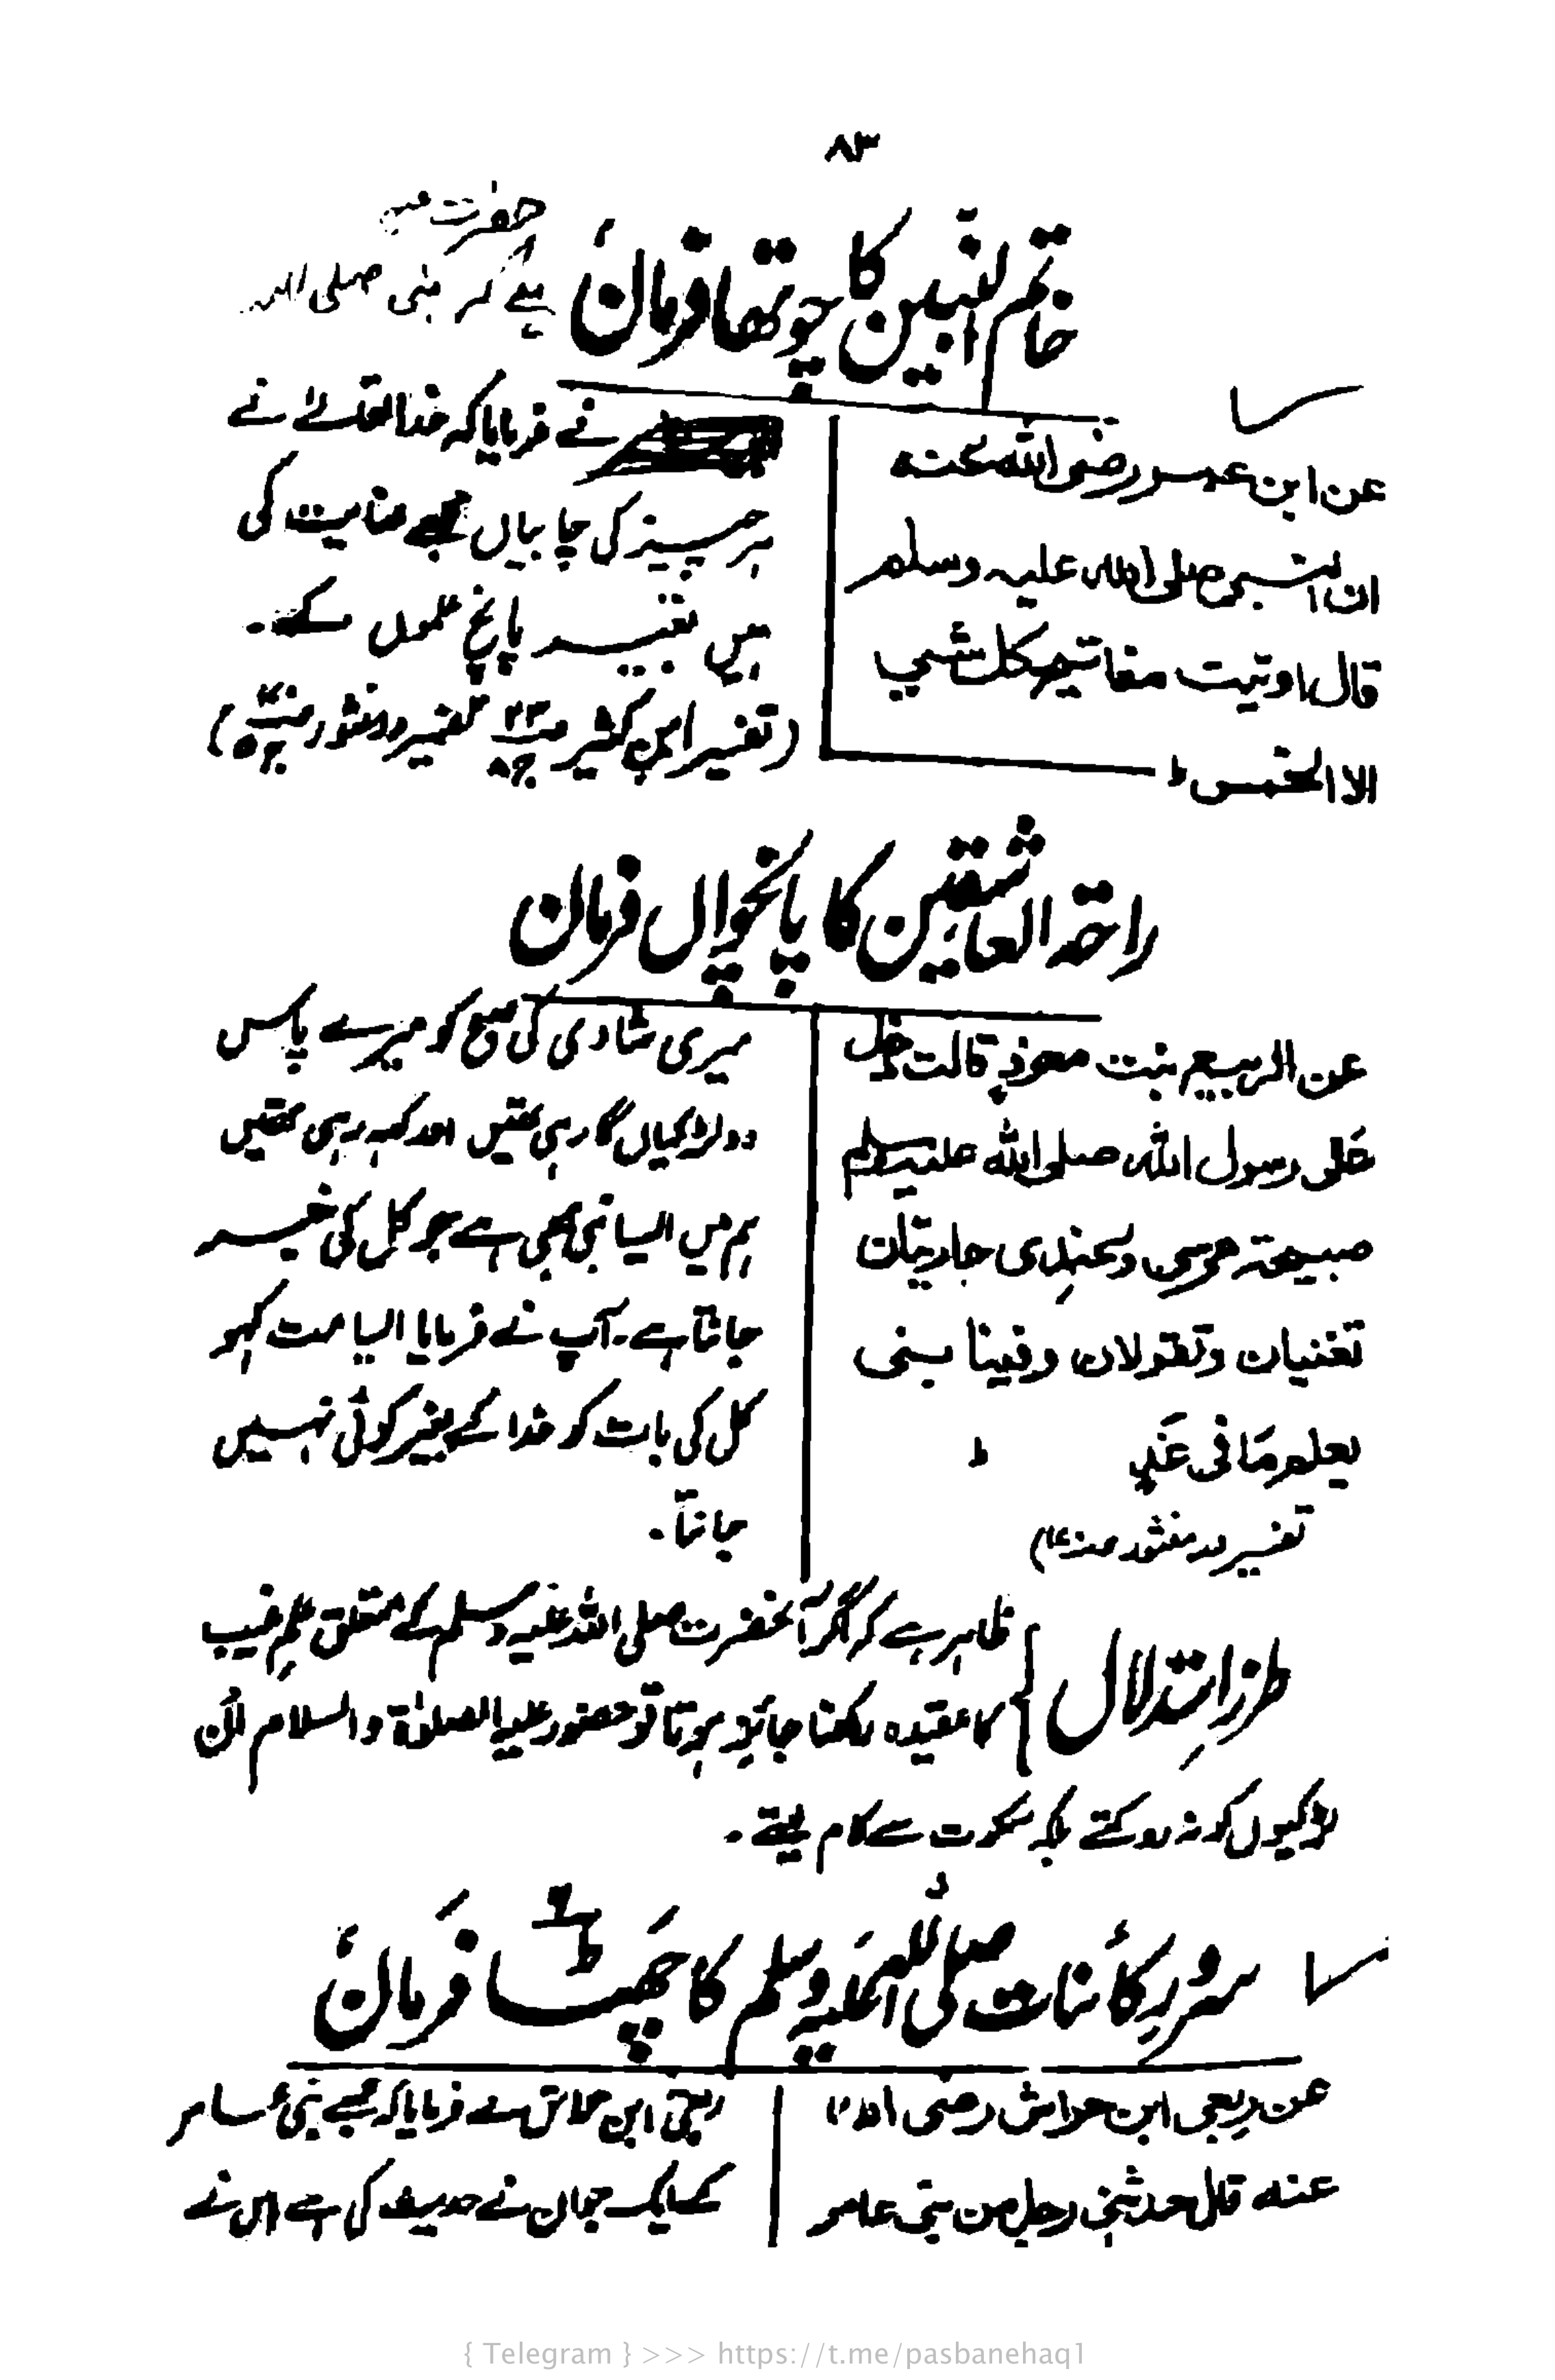 ۸۳
خاتم النبیین کا چوتھا فرمان
حضرت
ہے کہ نبی صلی اللہ
عن ابن عمر رضی اللہ عنہ
ان النبی صلی اللہ علیہ وسلم
قال اوتیت مفاتیح کل شیی
الا الخمس ط
نے فرمایا کہ خدا تعالےٰ نے
ہر چیز کی چابیاں مجھے عنایت کی
ہیں بغیر پانچ علموں کے۔
(تفسیر ابن کثیر تفسیر در منثور)
راحۃ العاشقین کا پانچواں فرمان
عن الربیع بنت معوذ قالت دخل
علی رسول اللہ صلی اللہ علیہ وسلم
صبیحۃ عرسی وعندی جاریتان
تغنیان وتقولان وفینا نبی
یعلم مَا فی غَدٍ ط
تفسیر در منثور
میری شادی کی صبح کو میرے پاس
دو لڑکیاں گا رہی تھیں اور کہہ رہی تھیں
ہم میں ایسا نبی بھی ہے جو کل کی خبر
جانتا ہے۔ آپ نے فرمایا ایسا مت کہو
کل کی بات کو خدا کے بغیر کوئی نہیں
جانتا۔
طرزِ استدلال
ظاہر ہے کہ اگر آنحضرت صلی اللہ علیہ وسلم کے متعلق علمِ غیب
کا عقیدہ رکھنا جائز ہوتا تو حضور علیہ الصلوٰۃ والسلام اُن
لڑکیوں کو نہ روکتے بلکہ سکوت سے کام لیتے۔
سرورِ کائنات صلی اللہ علیہ وسلم کا چھٹا فرمان
عن ربعی ابن حراش رضی اللہ
عنہ قال حدثنی رجل من بنی عامر
ربعی ابن حراش نے فرمایا کہ مجھے بنی عامر
کے ایک جوان نے حدیث کی ہے اس نے
{ Telegram } >>> https://t.me/pasbanehaq1